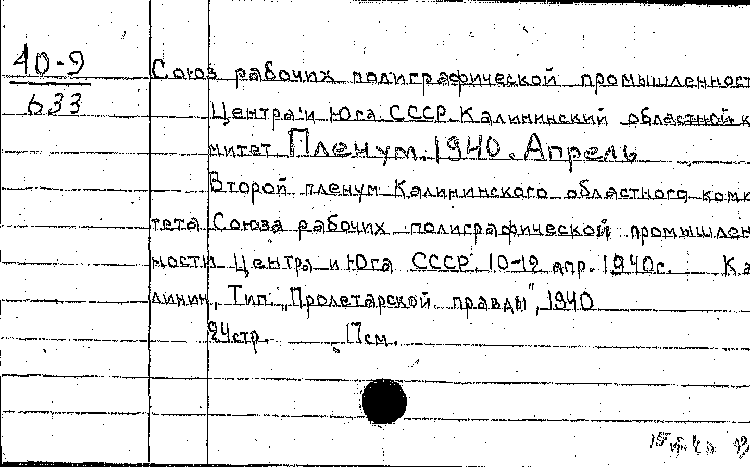 40-9
633
Союз рабочих полиграфической промышленност
Центра и Юга СССР. Калининский областной к
митет Пленум. 1940. Апрель
Второй пленум Калининского областного коми
тета Союза рабочих полиграфической промышлен
ности Центра и Юга СССР. 10-12 апр. 1940г. Ка
линин, Тип. "Пролетарской правды", 1940
24стр. 17см.